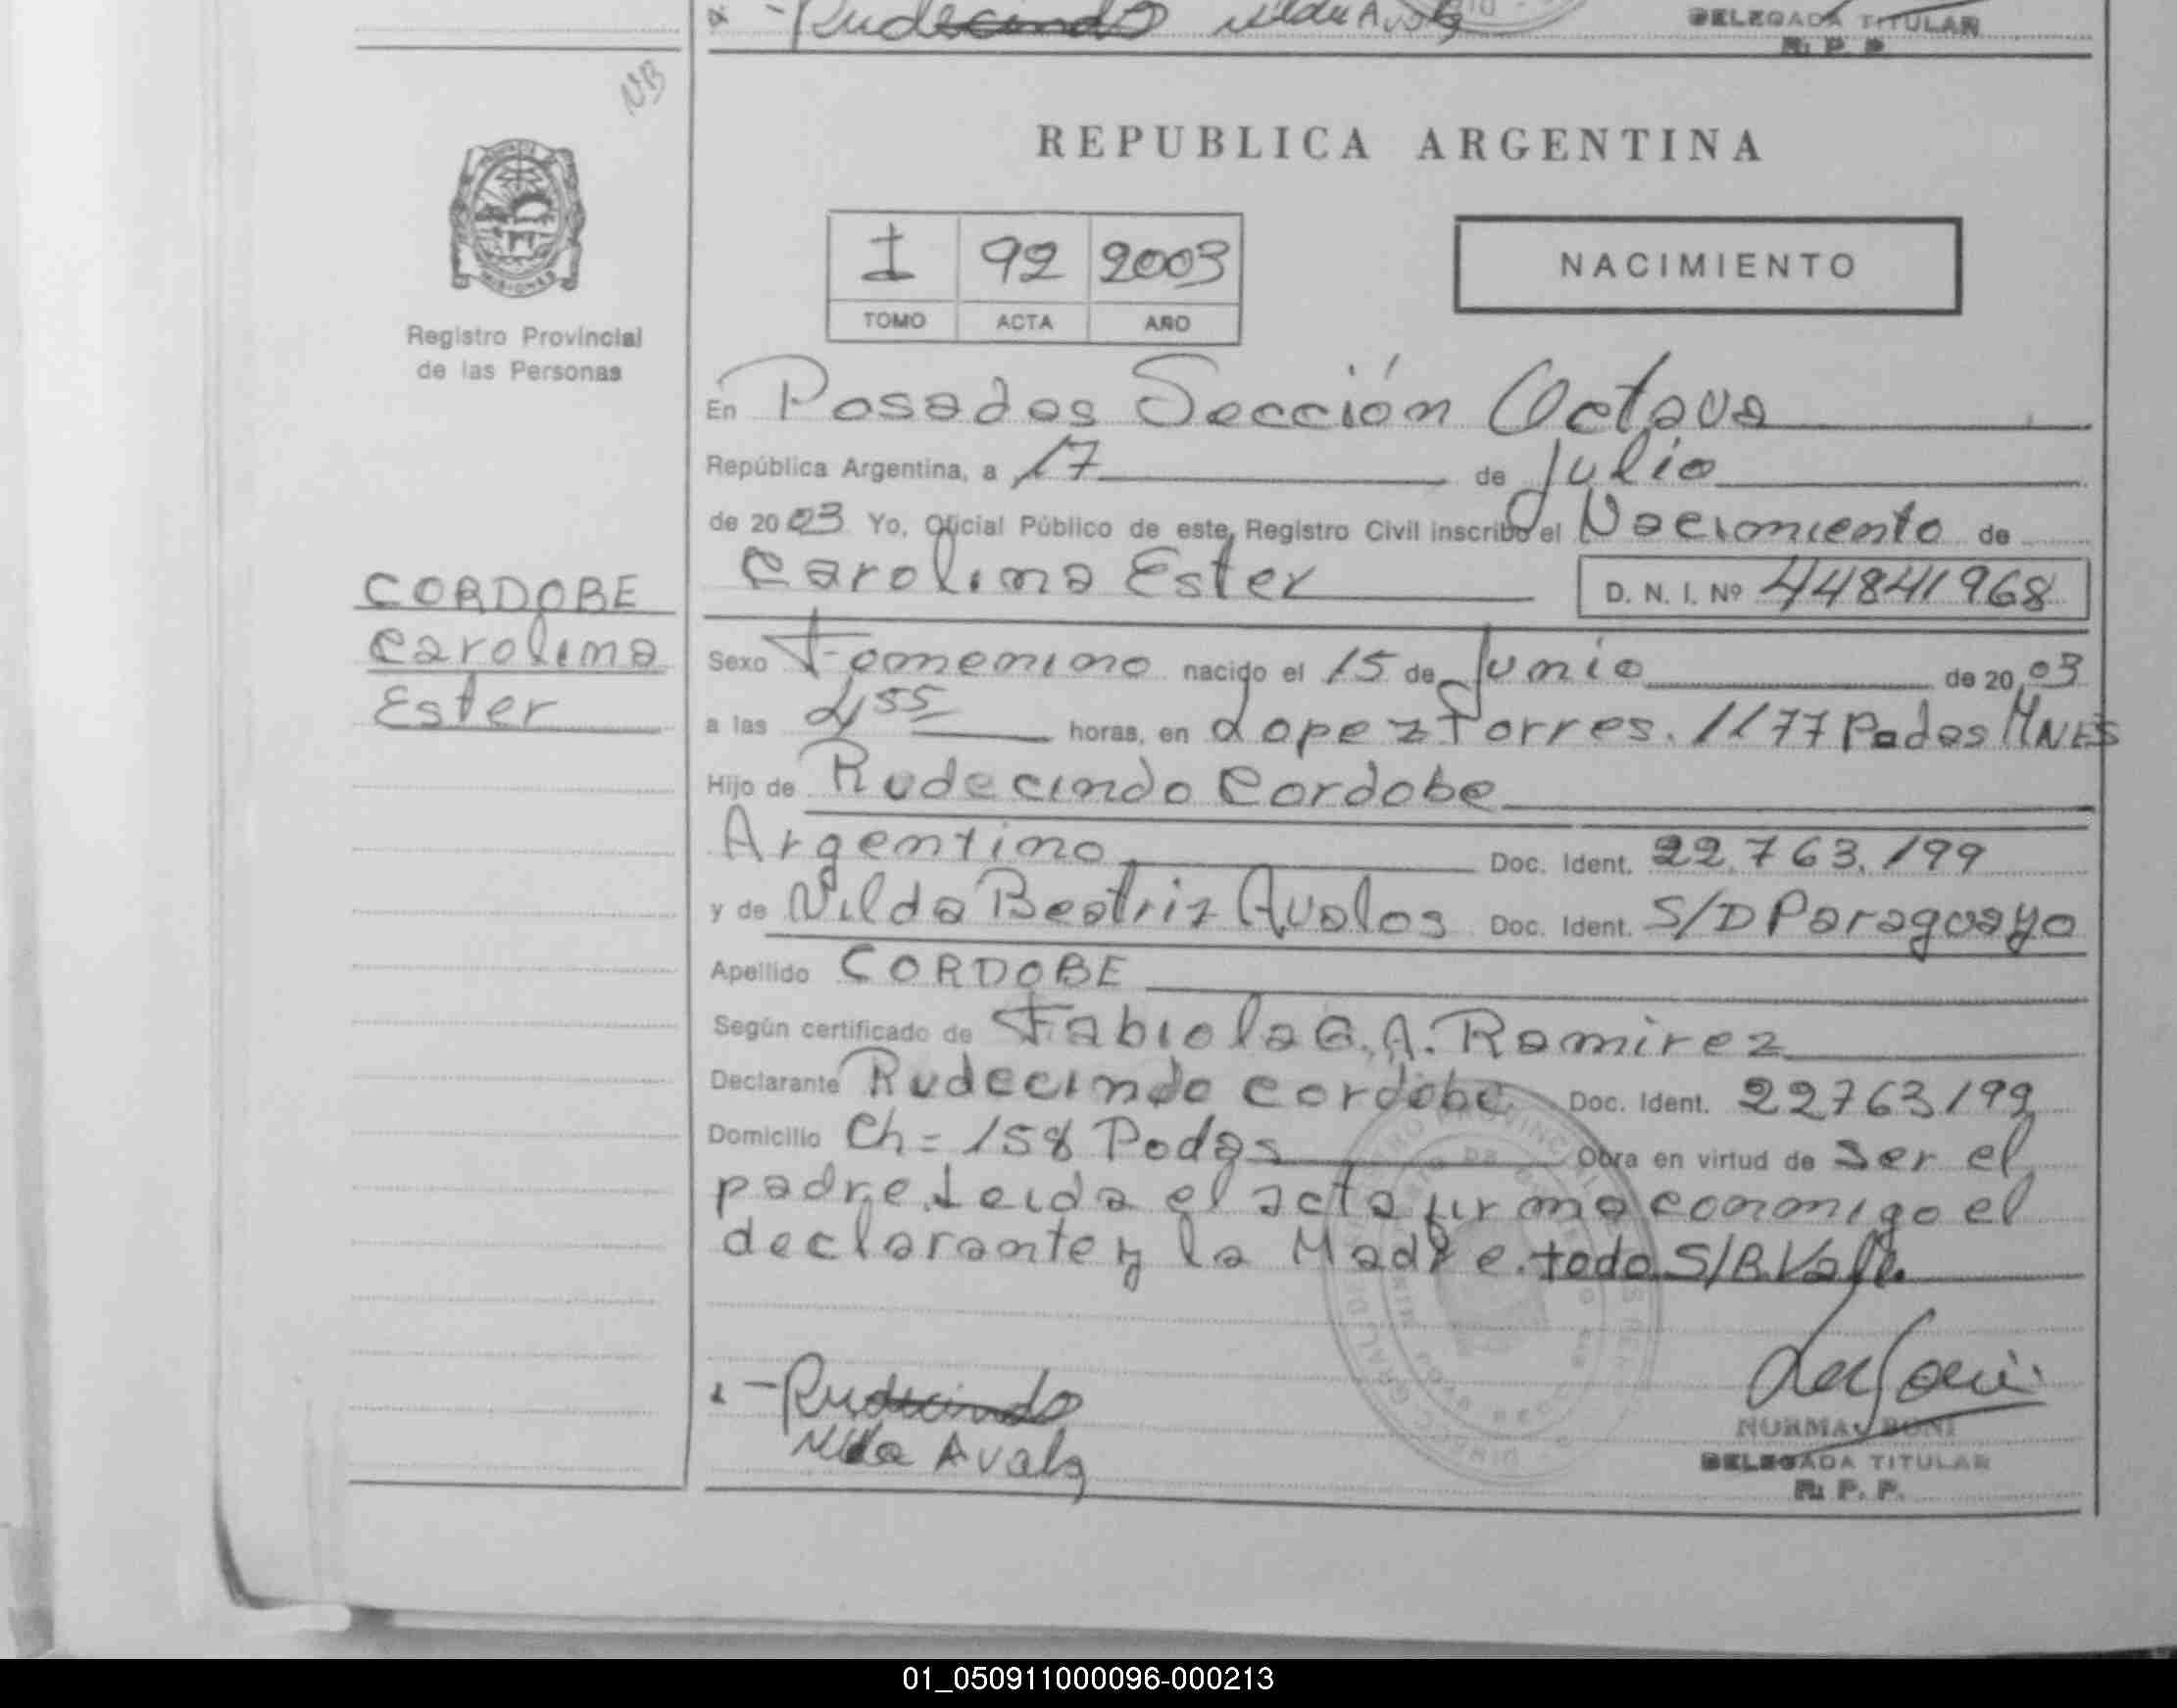 Rudecindo
DELEGADA TITULAR
R. P. P.
NB
REPUBLICA ARGENTINA
MISIONES
I 92 2003
TOMO ACTA AÑO
NACIMIENTO
Registro Provincial
de las Personas
En Posadas Sección Octava
República Argentina, a 17 de Julio
de 2003 Yo, Oficial Público de este Registro Civil inscribo el Nacimiento de
Carolina Ester D. N. I. Nº 44841968
CORDOBE
Carolina
Ester
Sexo Femenino nacido el 15 de Junio de 2003
a las 4 55 horas, en Lopez Torres. 1177 Padas MNES
Hijo de Rudecindo Cordobe
Argentino Doc. Ident. 22.763.199
y de Nilda Beatriz Avalos Doc. Ident. S/D Paraguaya
Apellido CORDOBE
Según certificado de Fabiola G. A. Ramirez
Declarante Rudecindo Cordobe Doc. Ident. 22763199
Domicilio Ch = 158 Podas Obra en virtud de Ser el
padre. Leida el acta firma conmigo el
declarante y la Madre. todo S/R. Vale.
Rudecindo
Nilda Avalos
NORMA J BONI
DELEGADA TITULAR
R. P. P.
01_050911000096-000213